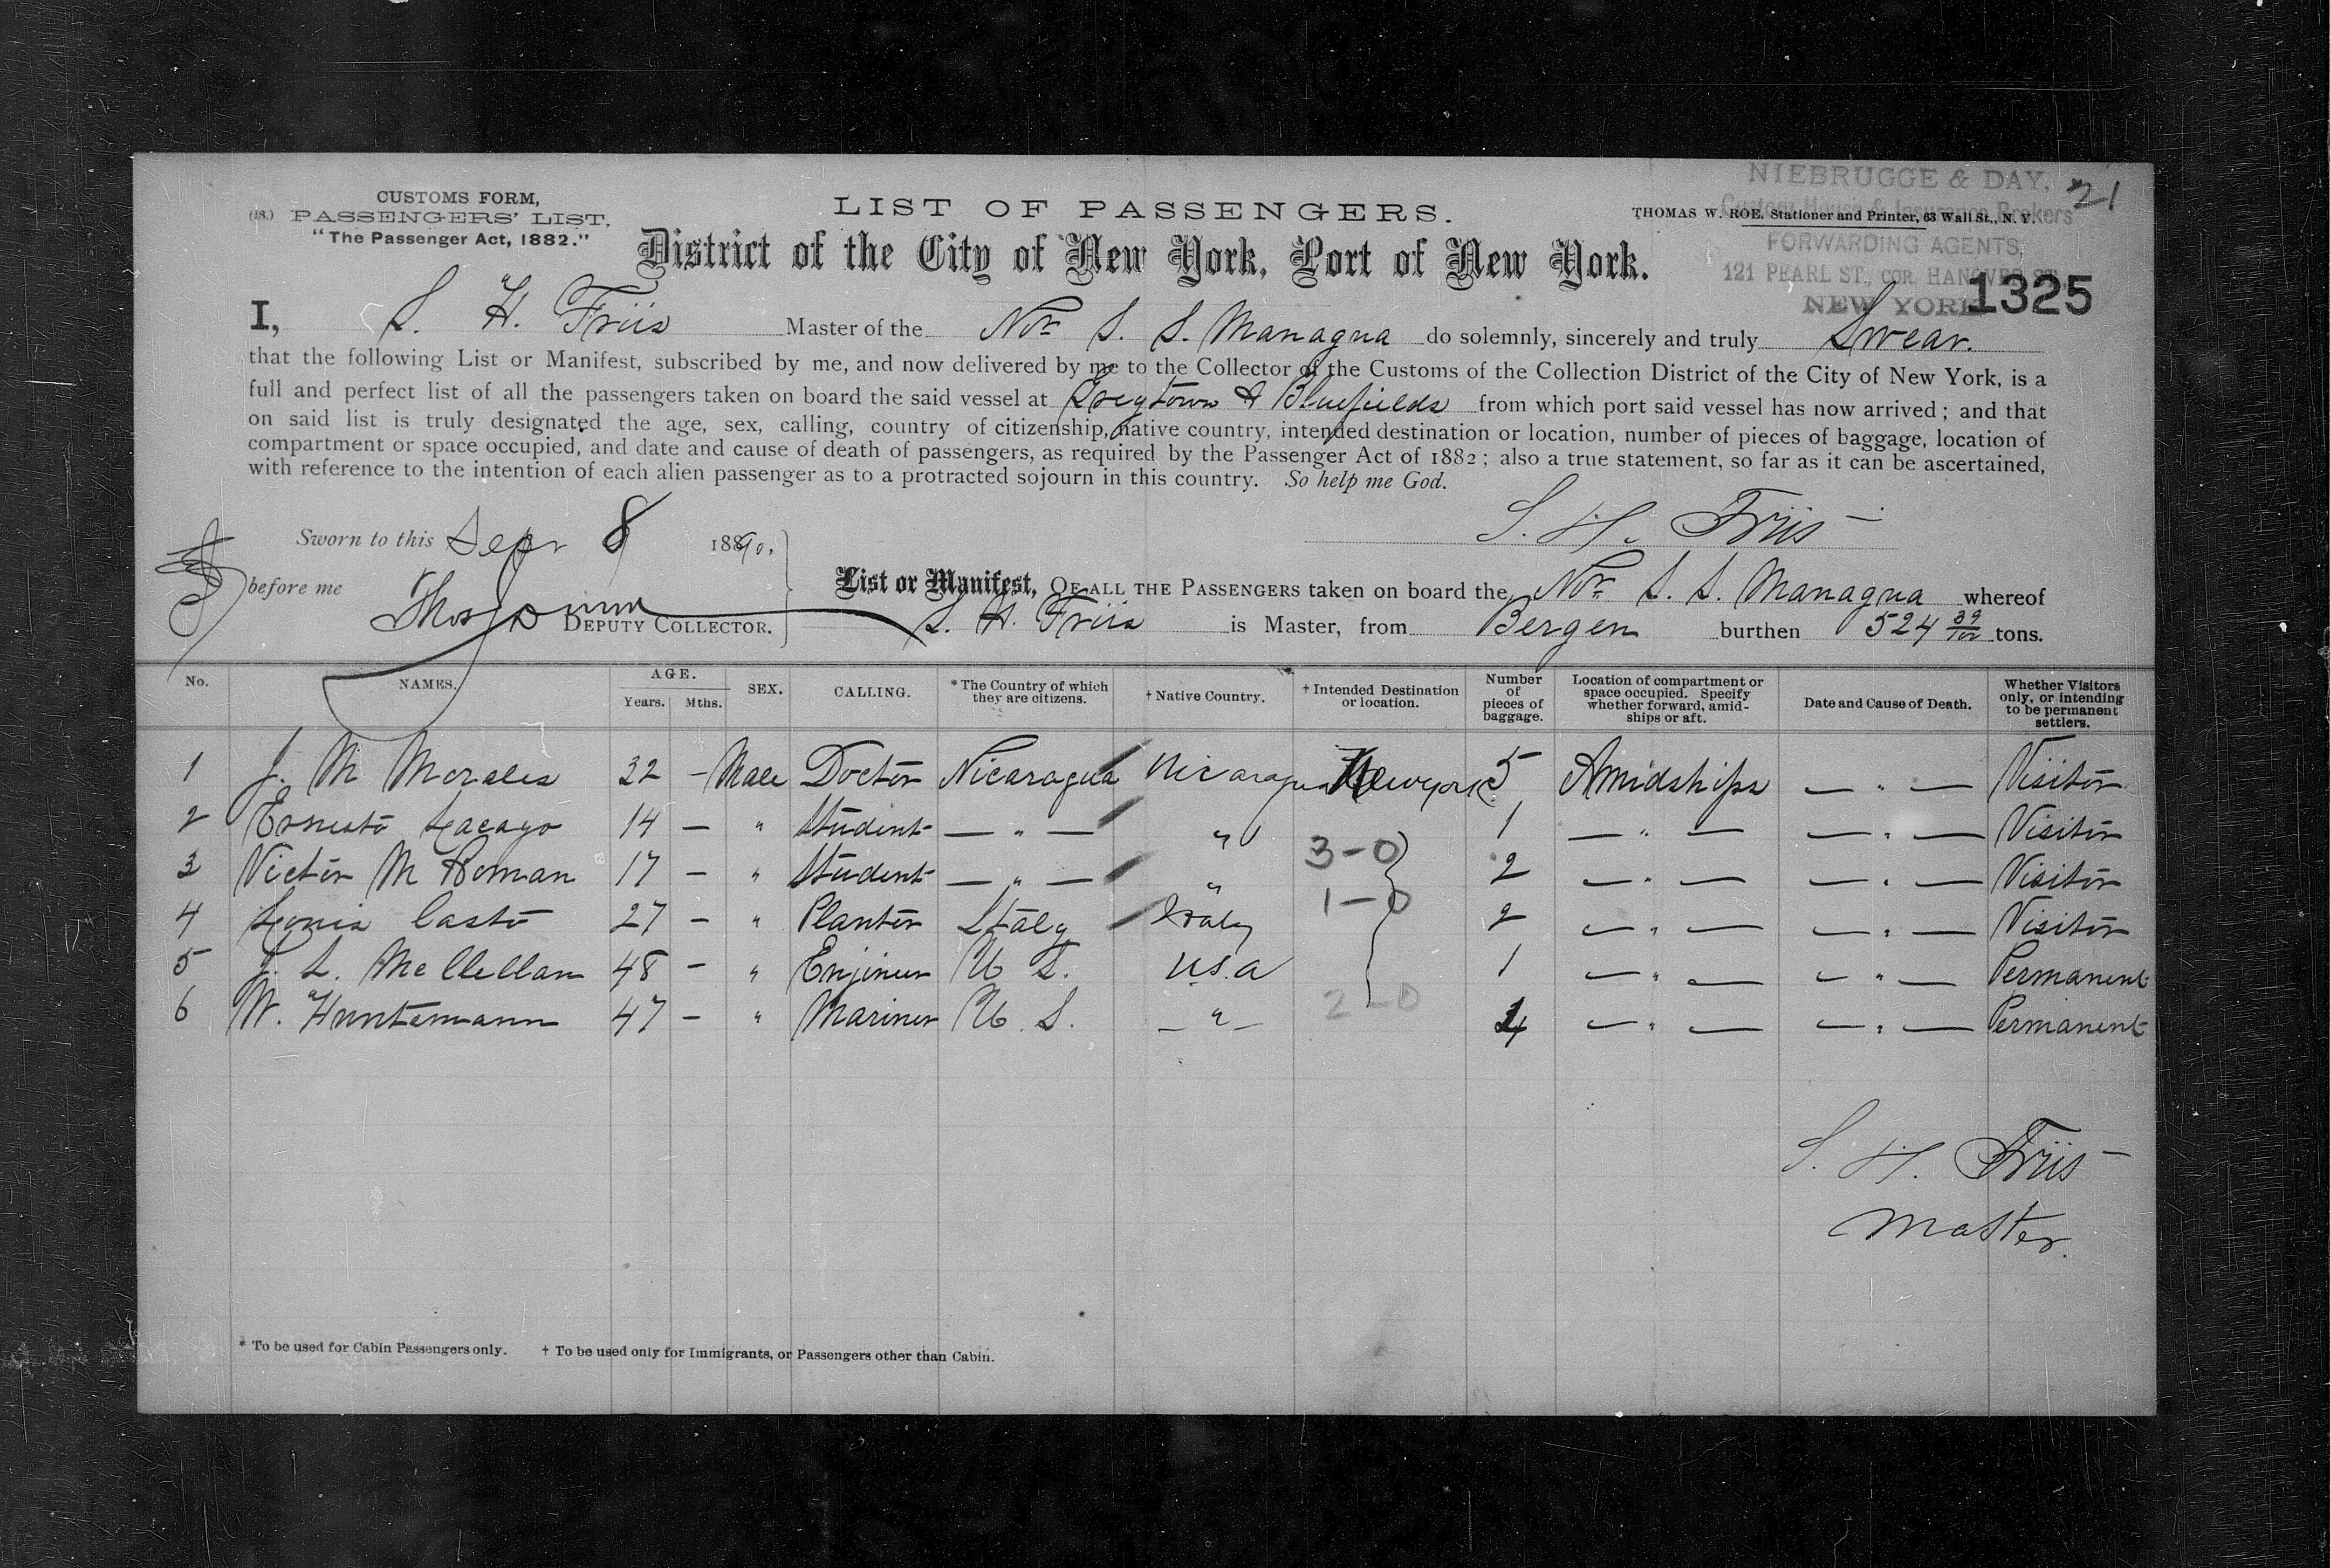 CUSTOMS FORM,
(18.) PASSENGERS' LIST,
"The Passenger Act, 1882."
LIST OF PASSENGERS.
THOMAS W. ROE, Stationer and Printer, 63 Wall St., N. Y.
NIEBRUGGE & DAY,
Custom House & Insurance Brokers
FORWARDING AGENTS,
121 PEARL ST., COR. HANOVER ST.
NEW YORK
21
1325
District of the City of New York, Port of New York.
I, S. H. Friis Master of the Nor S. S. Managua do solemnly, sincerely and truly Swear.
that the following List or Manifest, subscribed by me, and now delivered by me to the Collector of the Customs of the Collection District of the City of New York, is a
full and perfect list of all the passengers taken on board the said vessel at Greytown & Bluefields from which port said vessel has now arrived; and that
on said list is truly designated the age, sex, calling, country of citizenship, native country, intended destination or location, number of pieces of baggage, location of
compartment or space occupied, and date and cause of death of passengers, as required by the Passenger Act of 1882; also a true statement, so far as it can be ascertained,
with reference to the intention of each alien passenger as to a protracted sojourn in this country. So help me God.
S. H. Friis
Sworn to this Sepr 8 1890.
before me Thos
DEPUTY COLLECTOR.
List or Manifest, OF ALL THE PASSENGERS taken on board the Nor S. S. Managua whereof
S. H. Friis is Master, from Bergen burthen 524 39/100 tons.
No. NAMES. AGE. Years. Mths. SEX. CALLING. * The Country of which they are citizens. † Native Country. † Intended Destination or location. Number of pieces of baggage. Location of compartment or space occupied. Specify whether forward, amidships or aft. Date and Cause of Death. Whether Visitors only, or intending to be permanent settlers.
1 J. M Morales 32 — Male Doctor Nicaragua Nicaragua New York 5 Amidships — " — Visitor
2 Ernesto 14 — " Student — " — " 1 — " — — " — Visitor
3 Victor M Roman 17 — " Student — " — " 3-0 2 — " — — " — Visitor
4 Louis Casto 27 — " Planter Italy Italy 1-0 2 — " — — " — Visitor
5 J. S. McClellan 48 — " Enjineer U S. U.S.a 1 — " — — " — Permanent
6 W. Huntemann 47 — " Mariner U. S. — " — 2-0 4 — " — — " — Permanent
S. H. Friis
Master.
* To be used for Cabin Passengers only. † To be used only for Immigrants, or Passengers other than Cabin.